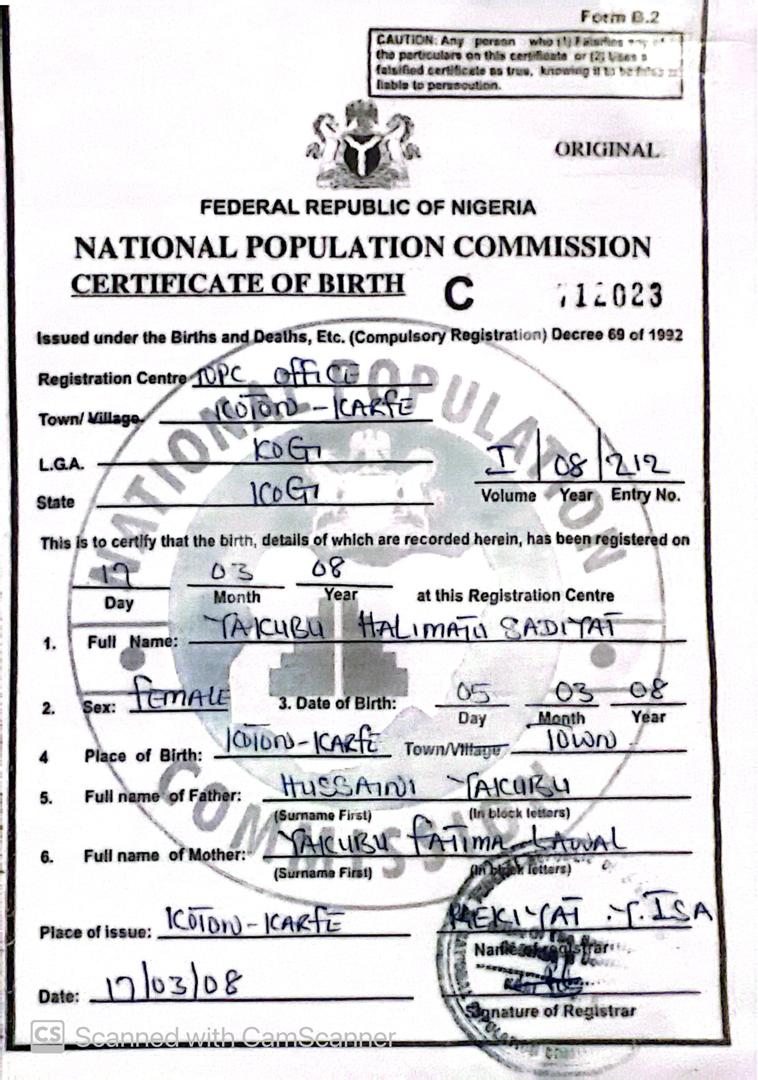 Form B.2
CAUTION: Any person who (1) Falsifies any of
the particulars on this certificate or (2) Uses a
falsified certificate as true, knowing it to be false is
liable to persecution.
ORIGINAL
FEDERAL REPUBLIC OF NIGERIA
NATIONAL POPULATION COMMISSION
CERTIFICATE OF BIRTH C 712023
Issued under the Births and Deaths, Etc. (Compulsory Registration) Decree 69 of 1992
Registration Centre NPC OFFICE
Town/Village KOTON-KARFE
L.G.A. KOGI
State KOGI
I 08 212
Volume Year Entry No.
This is to certify that the birth, details of which are recorded herein, has been registered on
17 03 08
Day Month Year at this Registration Centre
1. Full Name: YAKUBU HALIMATU SADIYAT
2. Sex: FEMALE 3. Date of Birth: 05 03 08
Day Month Year
4 Place of Birth: KOTON-KARFE Town/Village TOWN
5. Full name of Father: HUSSAINI YAKUBU
(Surname First) (In block letters)
6. Full name of Mother: YAKUBU FATIMA LAWAL
(Surname First) (In block letters)
Place of issue: KOTON-KARFE
Date: 17/03/08
REKIYAT .Y. ISA
Name of registrar
Signature of Registrar
NATIONAL POPULATION COMMISSION
CS Scanned with CamScanner